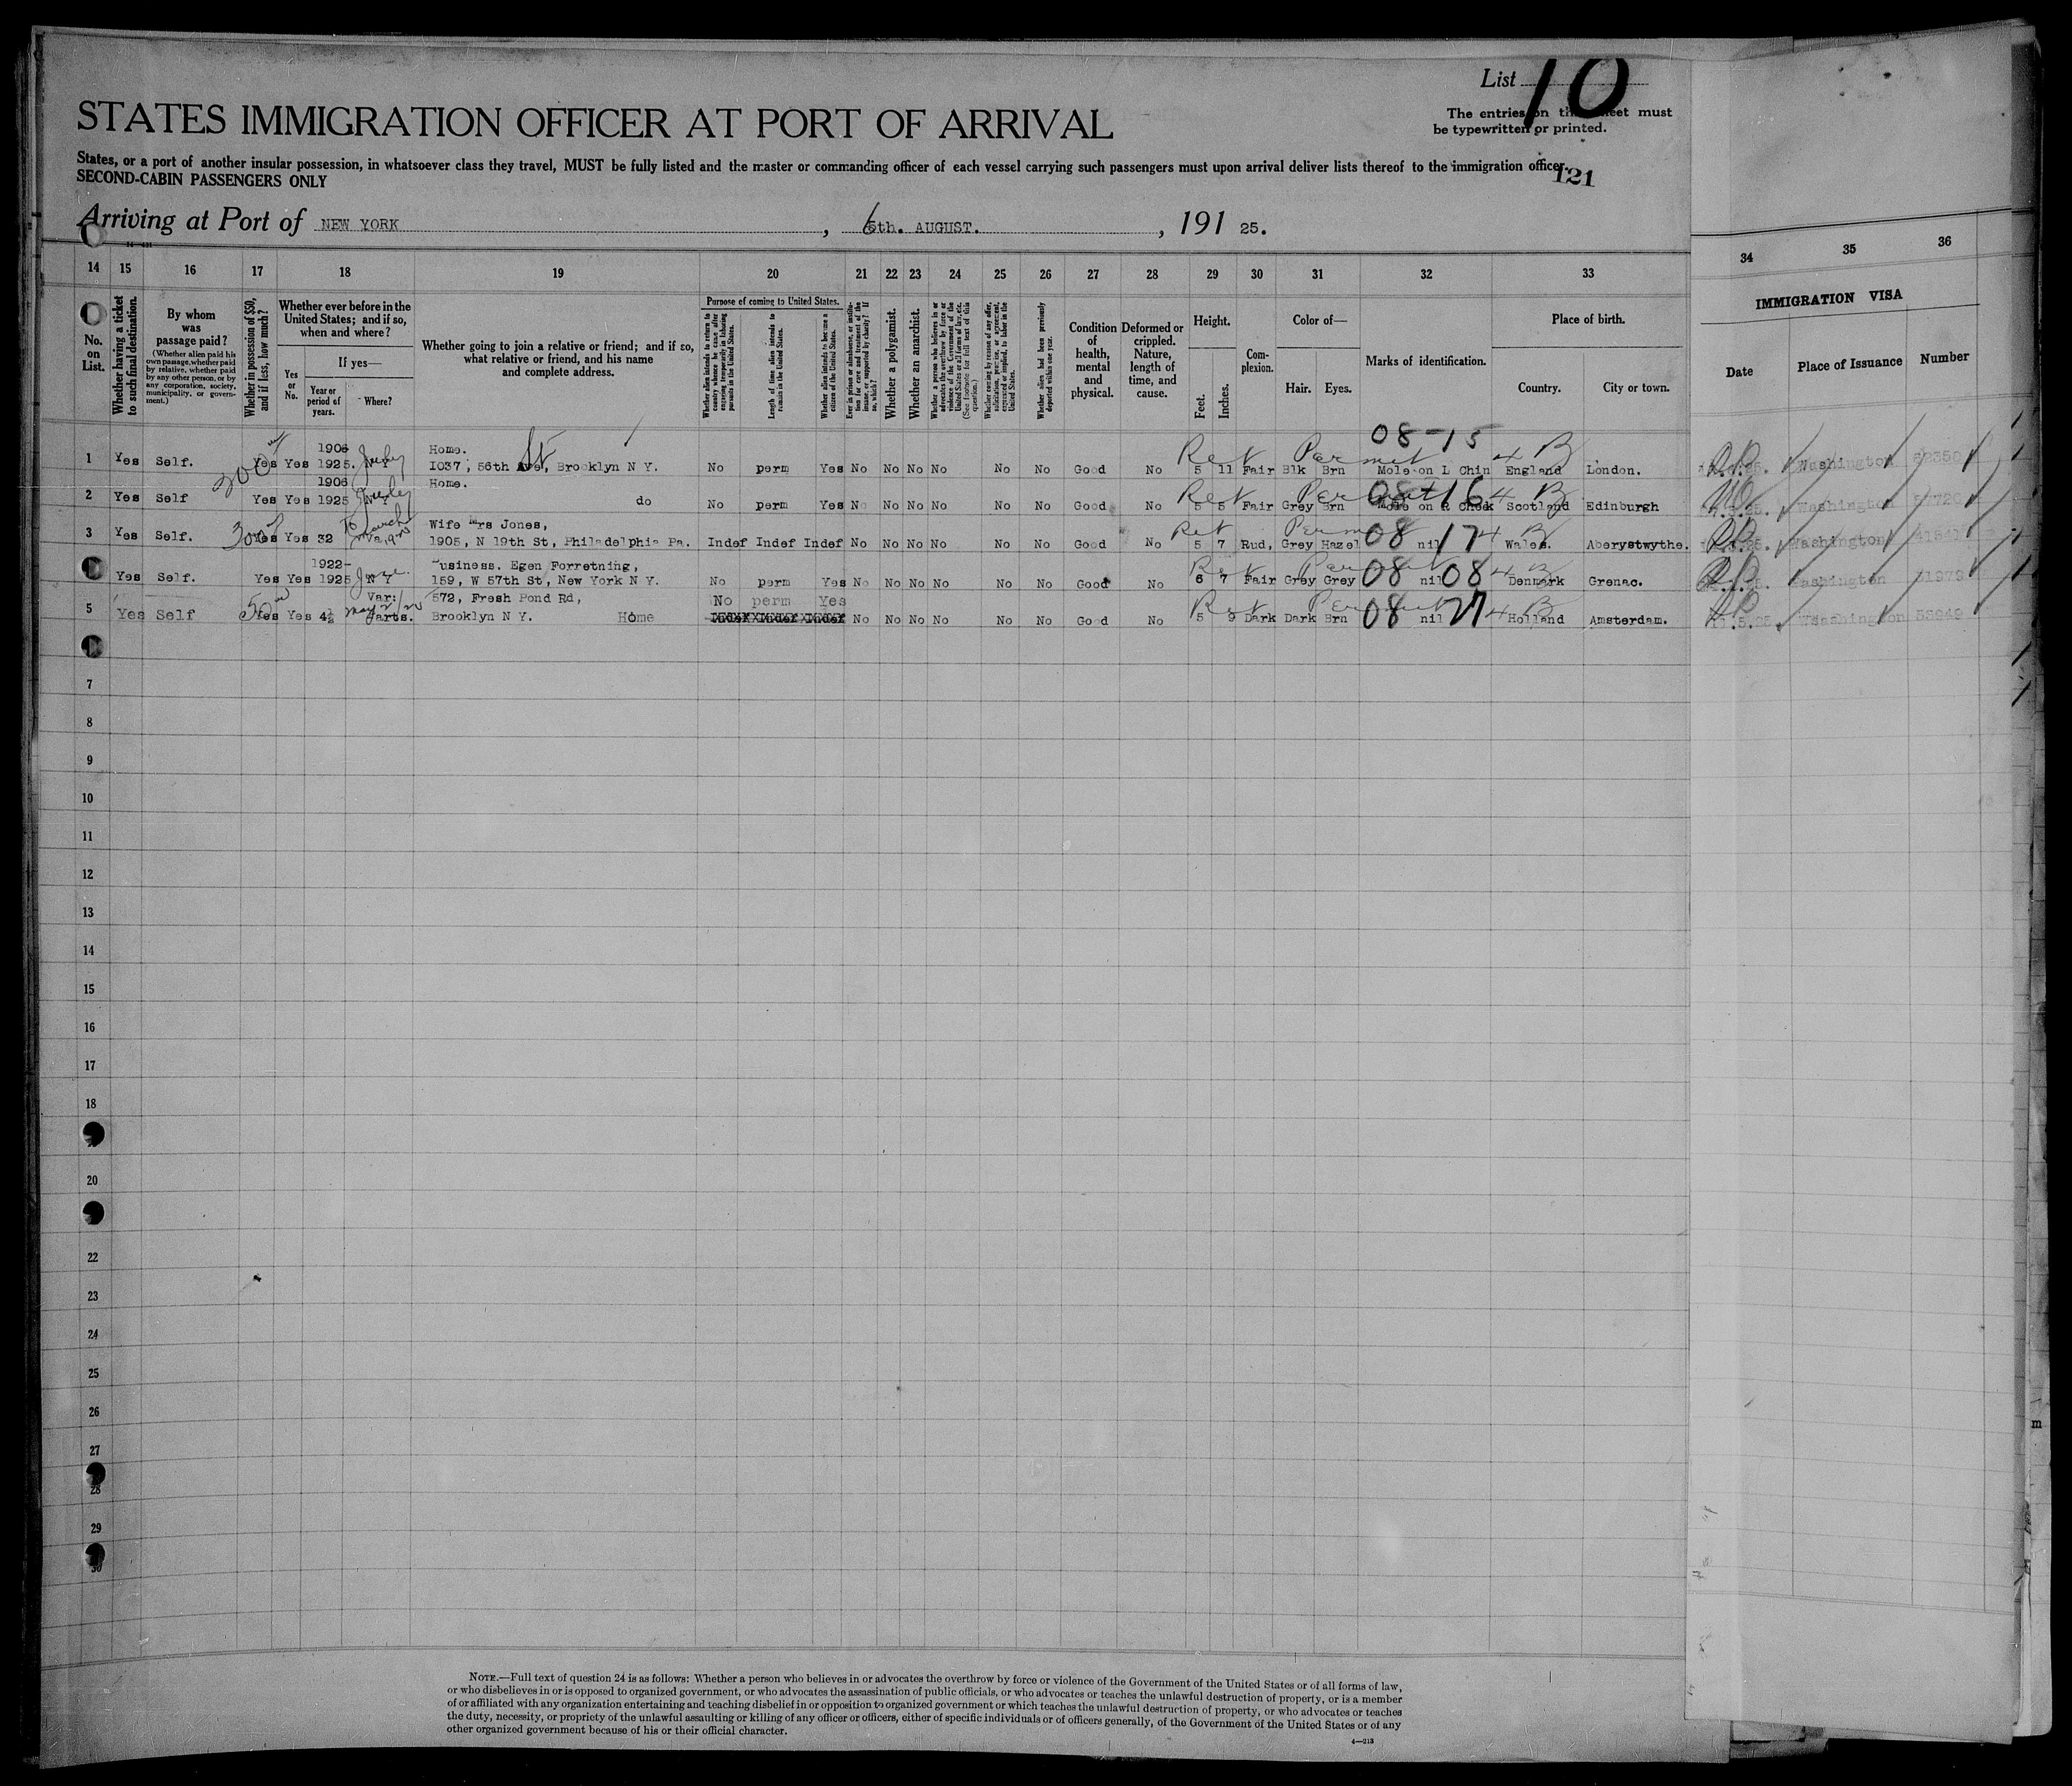 List 10
The entries on this sheet must
be typewritten or printed.
STATES IMMIGRATION OFFICER AT PORT OF ARRIVAL
States, or a port of another insular possession, in whatsoever class they travel, MUST be fully listed and the master or commanding officer of each vessel carrying such passengers must upon arrival deliver lists thereof to the immigration officer.
121
SECOND-CABIN PASSENGERS ONLY
Arriving at Port of NEW YORK, 6th. AUGUST., 191 25.
14 15 16 17 18 19 20 21 22 23 24 25 26 27 28 29 30 31 32 33 34 35 36
No. on List.
Whether having a ticket to such final destination.
By whom was passage paid?
(Whether alien paid his own passage, whether paid by relative, whether paid by any other person, or by any corporation, society, municipality, or government.)
Whether in possession of $50, and if less, how much?
Whether ever before in the United States; and if so, when and where?
If yes—
Yes or No.
Year or period of years.
Where?
Whether going to join a relative or friend; and if so, what relative or friend, and his name and complete address.
Purpose of coming to United States.
Whether alien intends to return to country whence he came after engaging temporarily in laboring pursuits in the United States.
Length of time alien intends to remain in the United States.
Whether alien intends to become a citizen of the United States.
Ever in prison or almshouse, or institution for care and treatment of the insane, or supported by charity? If so, which?
Whether a polygamist.
Whether an anarchist.
Whether a person who believes in or advocates the overthrow by force or violence of the Government of the United States or all forms of law, etc. (See footnote for full text of this question.)
Whether coming by reason of any offer, solicitation, promise, or agreement, expressed or implied, to labor in the United States.
Whether alien had been previously deported within one year.
Condition of health, mental and physical.
Deformed or crippled. Nature, length of time, and cause.
Height.
Feet. Inches.
Complexion.
Color of—
Hair. Eyes.
Marks of identification.
Place of birth.
Country. City or town.
IMMIGRATION VISA
Date Place of Issuance Number
08-15
1 Yes Self. 200 Yes Yes 1906 1925. N Y July Home. 1037, 56th Ave, St Brooklyn N Y. No perm Yes No No No No No No Good No 5 11 Fair Blk Brn Mole on L Chin England London. Washington
Ret Permit 4 B
2 Yes Self Yes Yes 1906 1925 N Y July Home. do No perm Yes No No No No No No Good No 5 5 Fair Grey Brn Mole on R Cheek Scotland Edinburgh Washington
Ret Permit 08 16 4 B
3 Yes Self. 300 Yes Yes 32 March Wife Mrs Jones, 1905, N 19th St, Philadelphia Pa. Indef Indef Indef No No No No No No Good No 5 7 Rud, Grey Hazel nil Wales. Aberystwythe. Washington
Ret Permit 08 17 4 B
Yes Self. Yes Yes 1922- 1925 N Y June Business. Egen Forretning, 159, W 57th St, New York N Y. No perm Yes No No No No No No Good No 6 7 Fair Grey Grey nil Denmark Grenac. Washington
Ret Permit 08 08 4 B
5 Yes Self 50 Yes Yes 4½ Var: Parts. 572, Fresh Pond Rd, Brooklyn N Y. Home No perm Yes Indef Indef Indef No No No No No No Good No 5 9 Dark Dark Brn nil Holland Amsterdam. Washington 53949
Ret Permit 08 77 4 B
7
8
9
10
11
12
13
14
15
16
17
18
20
22
23
24
25
26
27
28
29
30
NOTE.—Full text of question 24 is as follows: Whether a person who believes in or advocates the overthrow by force or violence of the Government of the United States or of all forms of law,
or who disbelieves in or is opposed to organized government, or who advocates the assassination of public officials, or who advocates or teaches the unlawful destruction of property, or is a member
of or affiliated with any organization entertaining and teaching disbelief in or opposition to organized government or which teaches the unlawful destruction of property, or who advocates or teaches
the duty, necessity, or propriety of the unlawful assaulting or killing of any officer or officers, either of specific individuals or of officers generally, of the Government of the United States or of any
other organized government because of his or their official character.
4—213